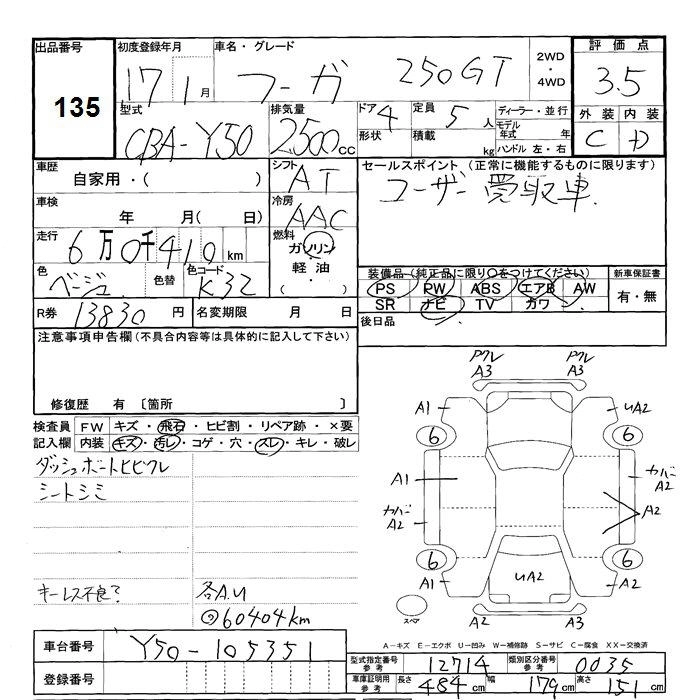 出品番号 初度登録年月 車名・グレード 評価点
135
17年 1月 フーガ 250GT 2WD・4WD 3.5
型式 排気量 ドア 4 定員 5人 ディーラー・並行 外装 内装
CBA-Y50 2500cc 形状 積載 kg モデル年式 年 C D
ハンドル 左・右
車歴 シフト セールスポイント (正常に機能するものに限ります)
自家用・( ) AT ユーザー買取車.
車検 冷房
年 月( 日) AAC
走行 燃料
6万0千410km ガソリン
軽油・( )
色 色替 色コード 装備品(純正品に限り○をつけてください) 新車保証書
ベージュ K32 PS PW ABS エアB AW 有・無
SR ナビ TV カワ
R券 13830円 名変期限 月 日 後日品
注意事項申告欄(不具合内容等は具体的に記入して下さい)
修復歴 有 〔箇所 〕
検査員 FW キズ・飛石・ヒビ割・リペア跡・×要
記入欄 内装 キズ・汚レ・コゲ・穴・スレ・キレ・破レ
ダッシュボードヒビワレ
シートシミ
キーレス不良? 各A.U
60404km
ワレ ワレ
A3 A3
A1 UA2
6 6
A1 カバーA2
カバーA2 A2
6 6
A1 UA2 A2
スペア A2 A3
車台番号 Y50-105351
登録番号
A-キズ E-エクボ U-凹み W-補修跡 S-サビ C-腐食 XX-交換済
型式指定番号 参考 12714 類別区分番号 参考 0035
車庫証明用 参考 長さ 484cm 幅 179cm 高さ 151cm